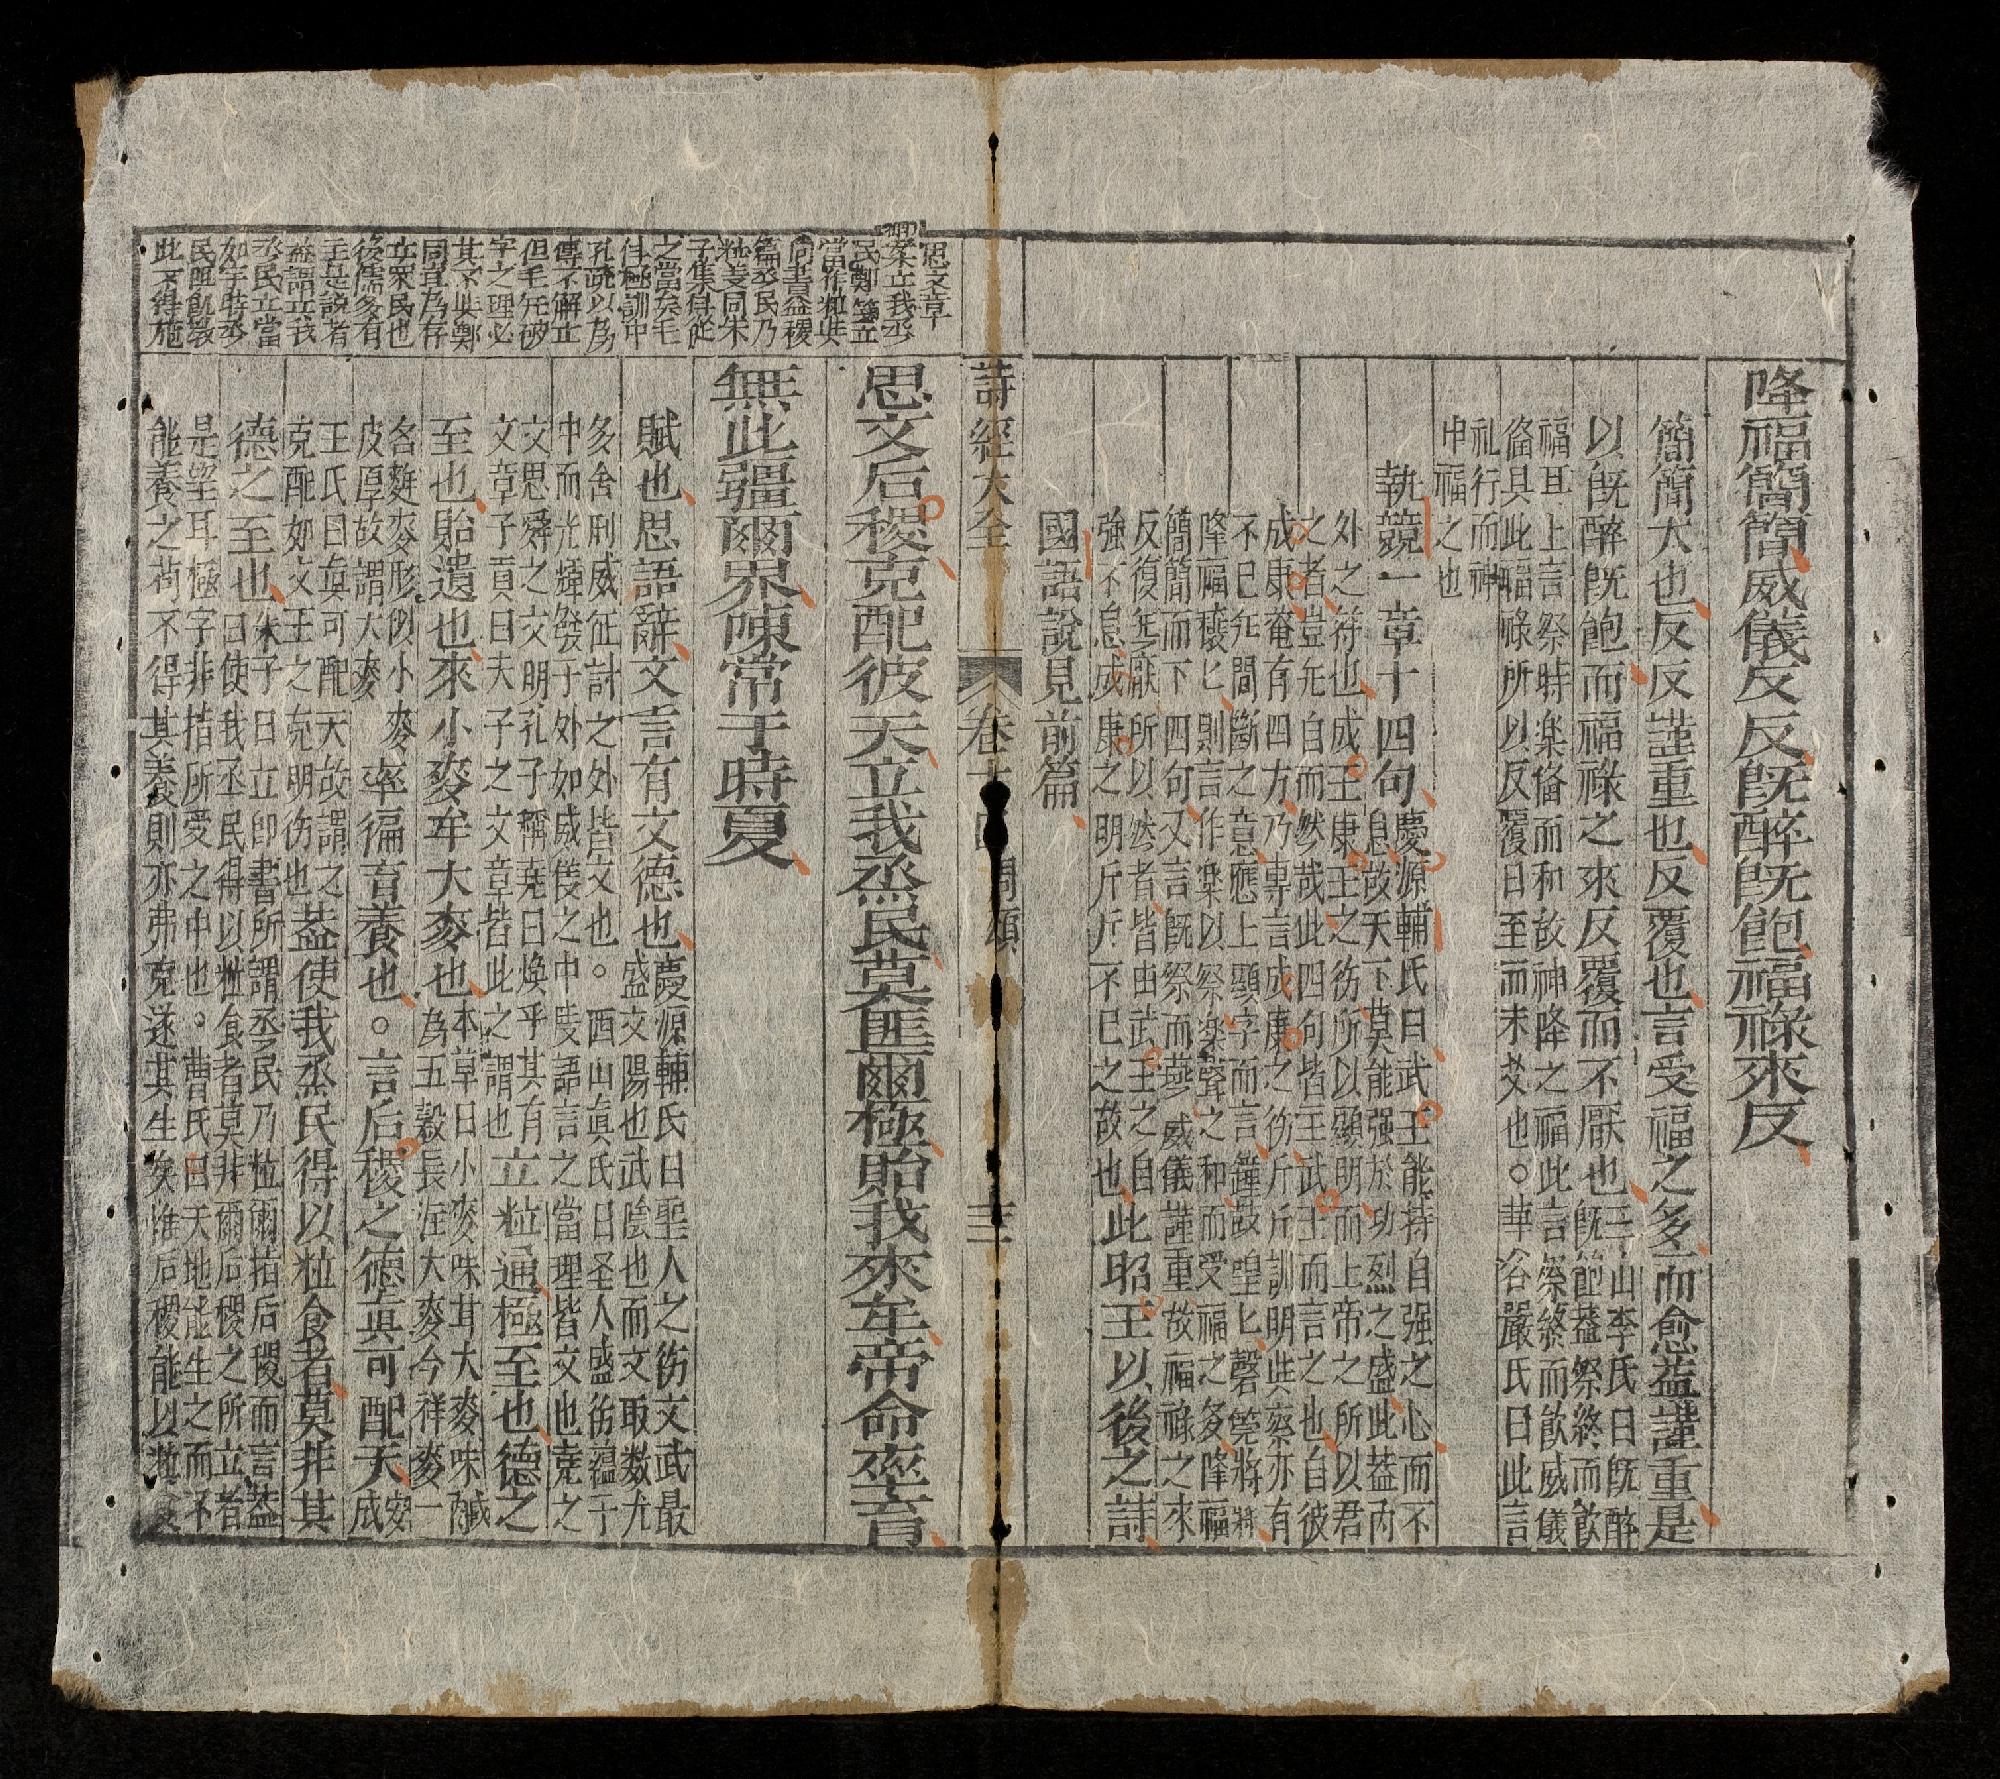 降福簡簡威儀反反既醉既飽福祿來反
簡簡大也反反謹重也反覆也言受福之多而愈益謹重是
以既醉既飽而福祿之來反覆而不厭也三山李氏曰既醉
既飽蓋祭終而飲
福耳上言祭時樂備而和故神降之福此言祭終而飲威儀
備具此福祿所以反覆曰至而未艾也○華谷嚴氏曰此言
礼行而神
申福之也
執競一章十四句慶源輔氏曰武王能持自强之心而不
息故天下莫能强於功烈之盛此蓋內
外之符也成王康王之德所以顯明而上帝之所以君
之者豈无自而然哉此四句皆主武王而言之也自彼
成康奄有四方乃專言成康之德斤斤訓明此察亦有
不已无間斷之意應上顯字而言鐘鼓喤匕磬筦將將
降福穰匕則言作樂以祭樂聲之和而受福之多降福
簡簡而下四句又言既祭而燕威儀謹重故福祿之來
反復無厭所以然者皆由武王之自
強不息成康之明斤斤不已之故也此昭王以後之詩
國語說見前篇
詩經大全
卷十
周頌
思文后稷克配彼天立我烝民莫匪爾極貽我來牟帝命率育
無此疆爾界陳常于時夏
賦也思語辭文言有文德也慶源輔氏曰聖人之德文武最
盛文陽也武陰也而文取数尤
多舍刑威征討之外皆文也○西山眞氏曰圣人盛德蘊于
中而光輝發于外如威儀之中度語言之當理皆文也堯之
文思舜之文明孔子稱堯曰煥乎其有
文章子貢曰夫子之文章皆此之謂也立粒通極至也德之
至也貽遺也來小麥牟大麥也本草曰小麥味甘大麥味醎
為五穀長注大麥今祼麥一
名麰麥形似小麥
皮厚故謂大麥率徧育養也○言后稷之德眞可配天安成
王氏曰眞可配天故謂之
克配如文王之克明德也蓋使我烝民得以粒食者莫非其
德之至也朱子曰立即書所謂烝民乃粒爾指后稷而言蓋
曰使我烝民得以粒食者莫非爾后稷之所立者
是望耳極字非指所受之中也○曹氏曰天地能生之而不
能養之苟不得其養則亦弗克遂其生矣惟后稷能以粒食
思文章
案立我烝
民鄭箋立
當作粒與
尚書益稷
篇烝民乃
粒義同朱
子集傳從
之當矣毛
但極訓中
孔疏以為
傳不解立
字之理必
但毛无破
其不與鄭
同宜為存
立眾民也
後儒多有
主是說者
益謂立我
烝民立當
如字時烝
民阻飢製
此不得施